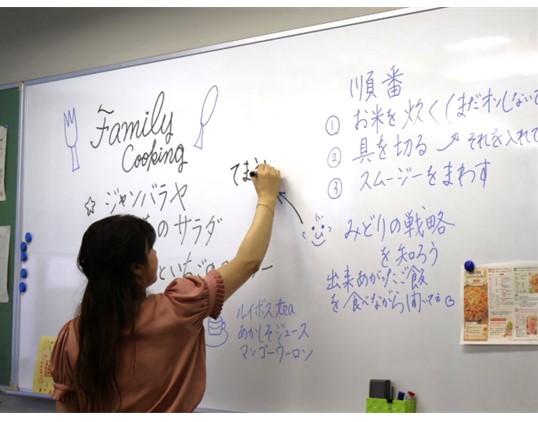 Family
Cooking
☆ ジャンバラヤ
のサラダ
ルイボスtea
あかしそジュース
マンゴーウーロン
順番
① お米を炊く(まだオンしないで
② 具を切る それを入れて
③ スムージーをまわす
みどりの戦略
を知ろう
出来あがったご飯
を食べながら